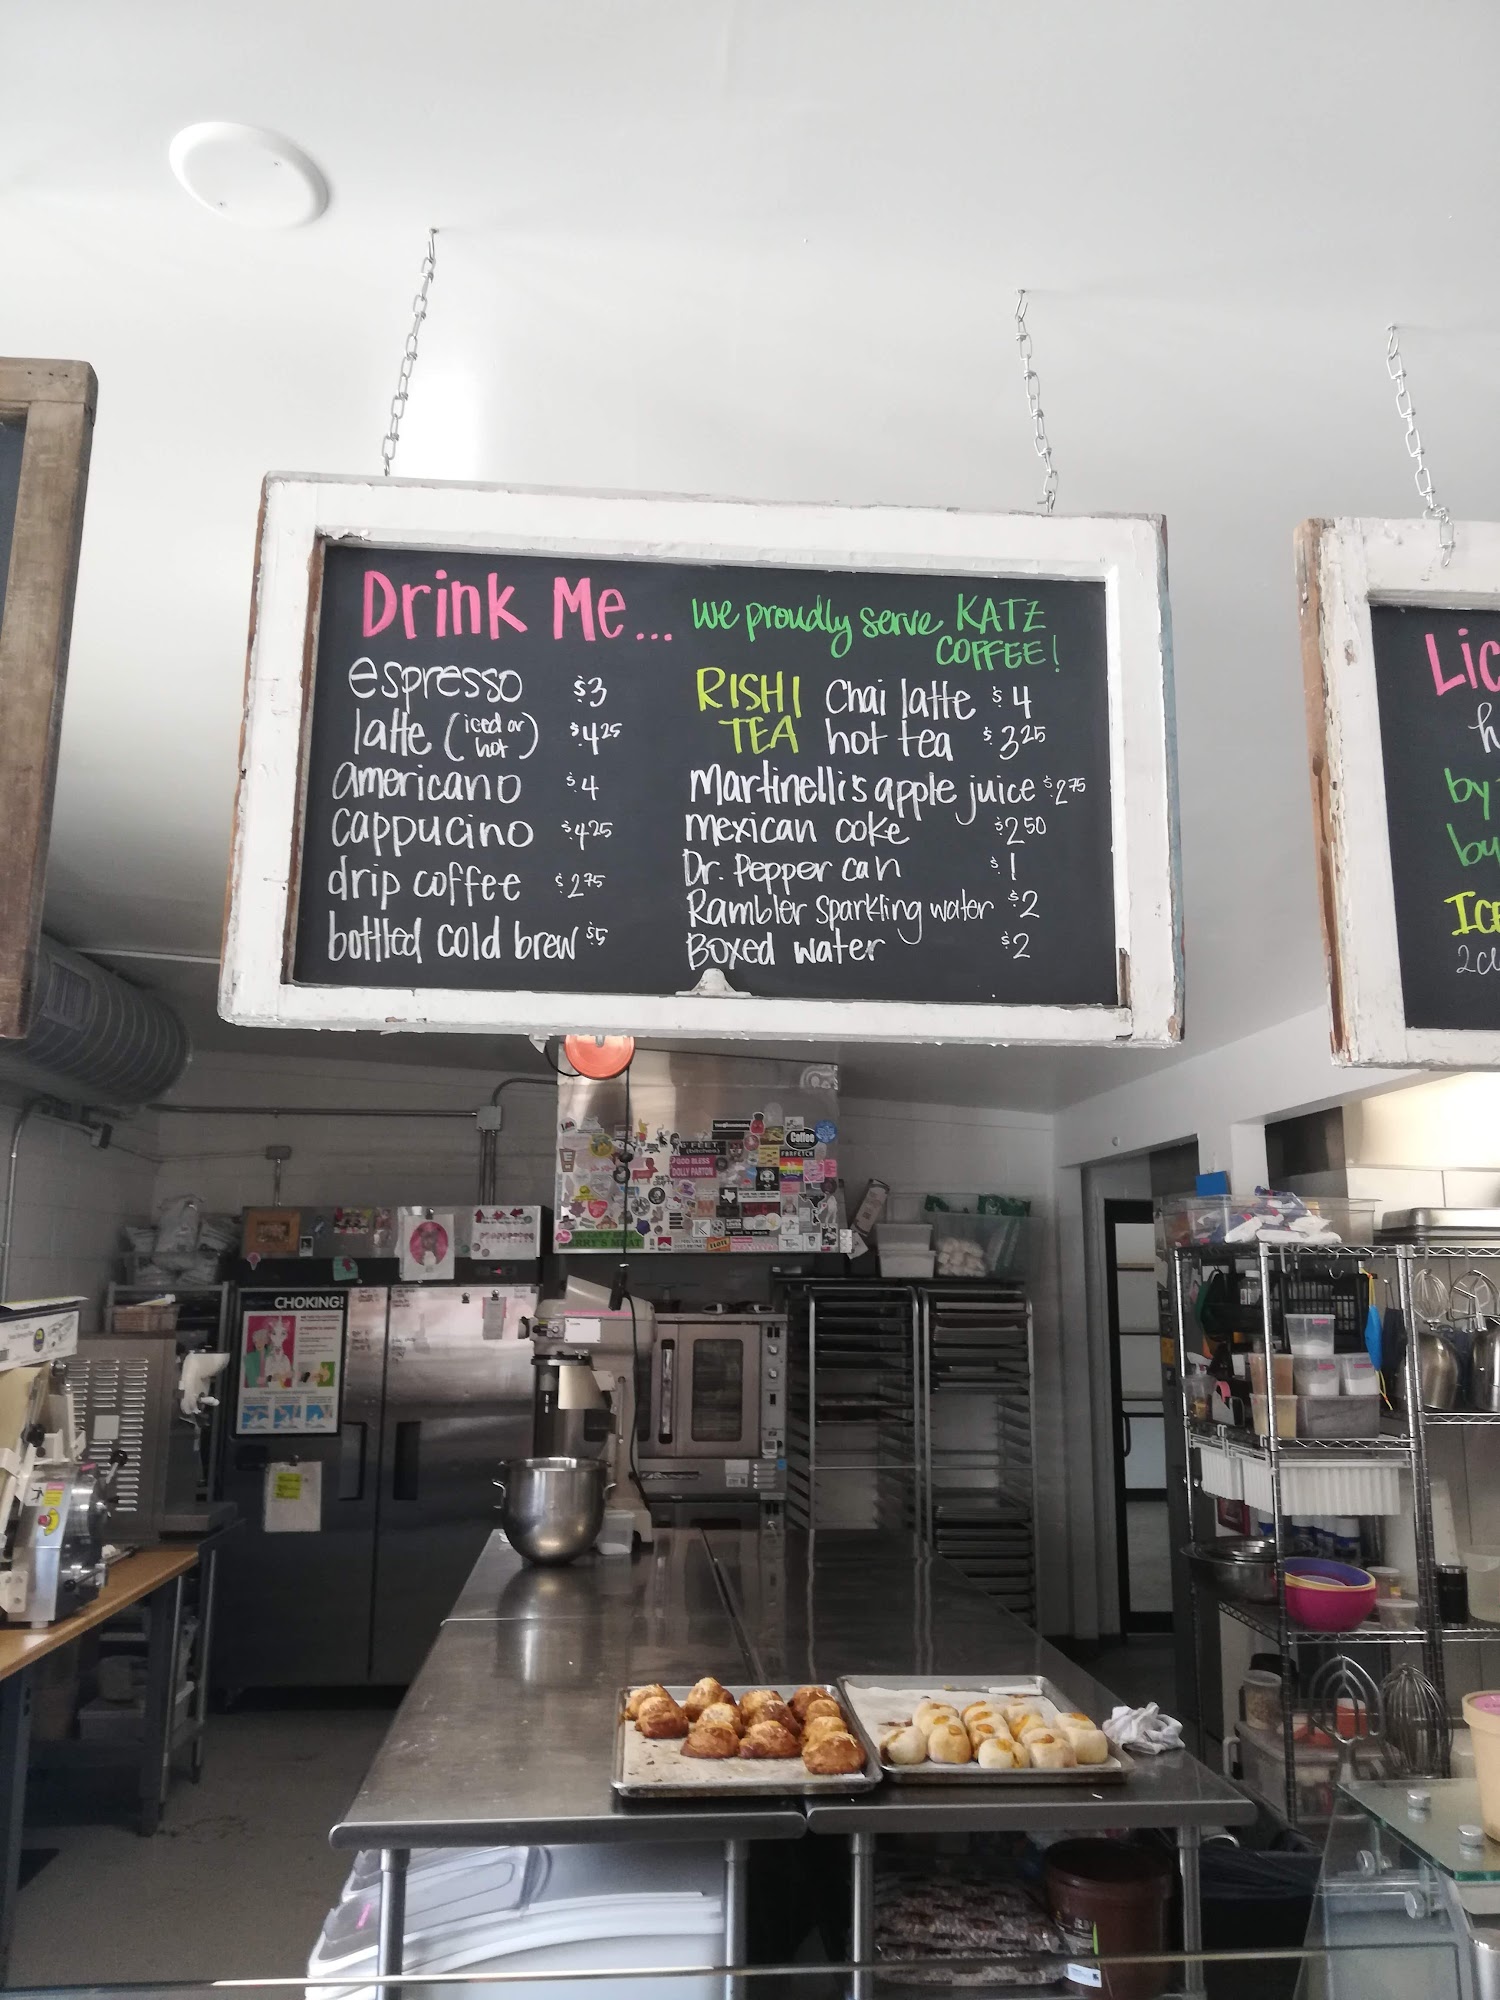 Drink Me...
espresso $3
latte (iced or hot) $4.25
americano $4
cappucino $4.25
drip coffee $2.75
bottled cold brew $5
we proudly serve KATZ
COFFEE!
RISHI TEA
Chai latte $4
hot tea $3.25
Martinelli's apple juice $2.75
mexican coke $2.50
Dr. Pepper can $1
Rambler sparkling water $2
Boxed water $2
Lic
h
by
by
ICE
CHOKING!
GOD BLESS
DOLLY PARTON
Coffee